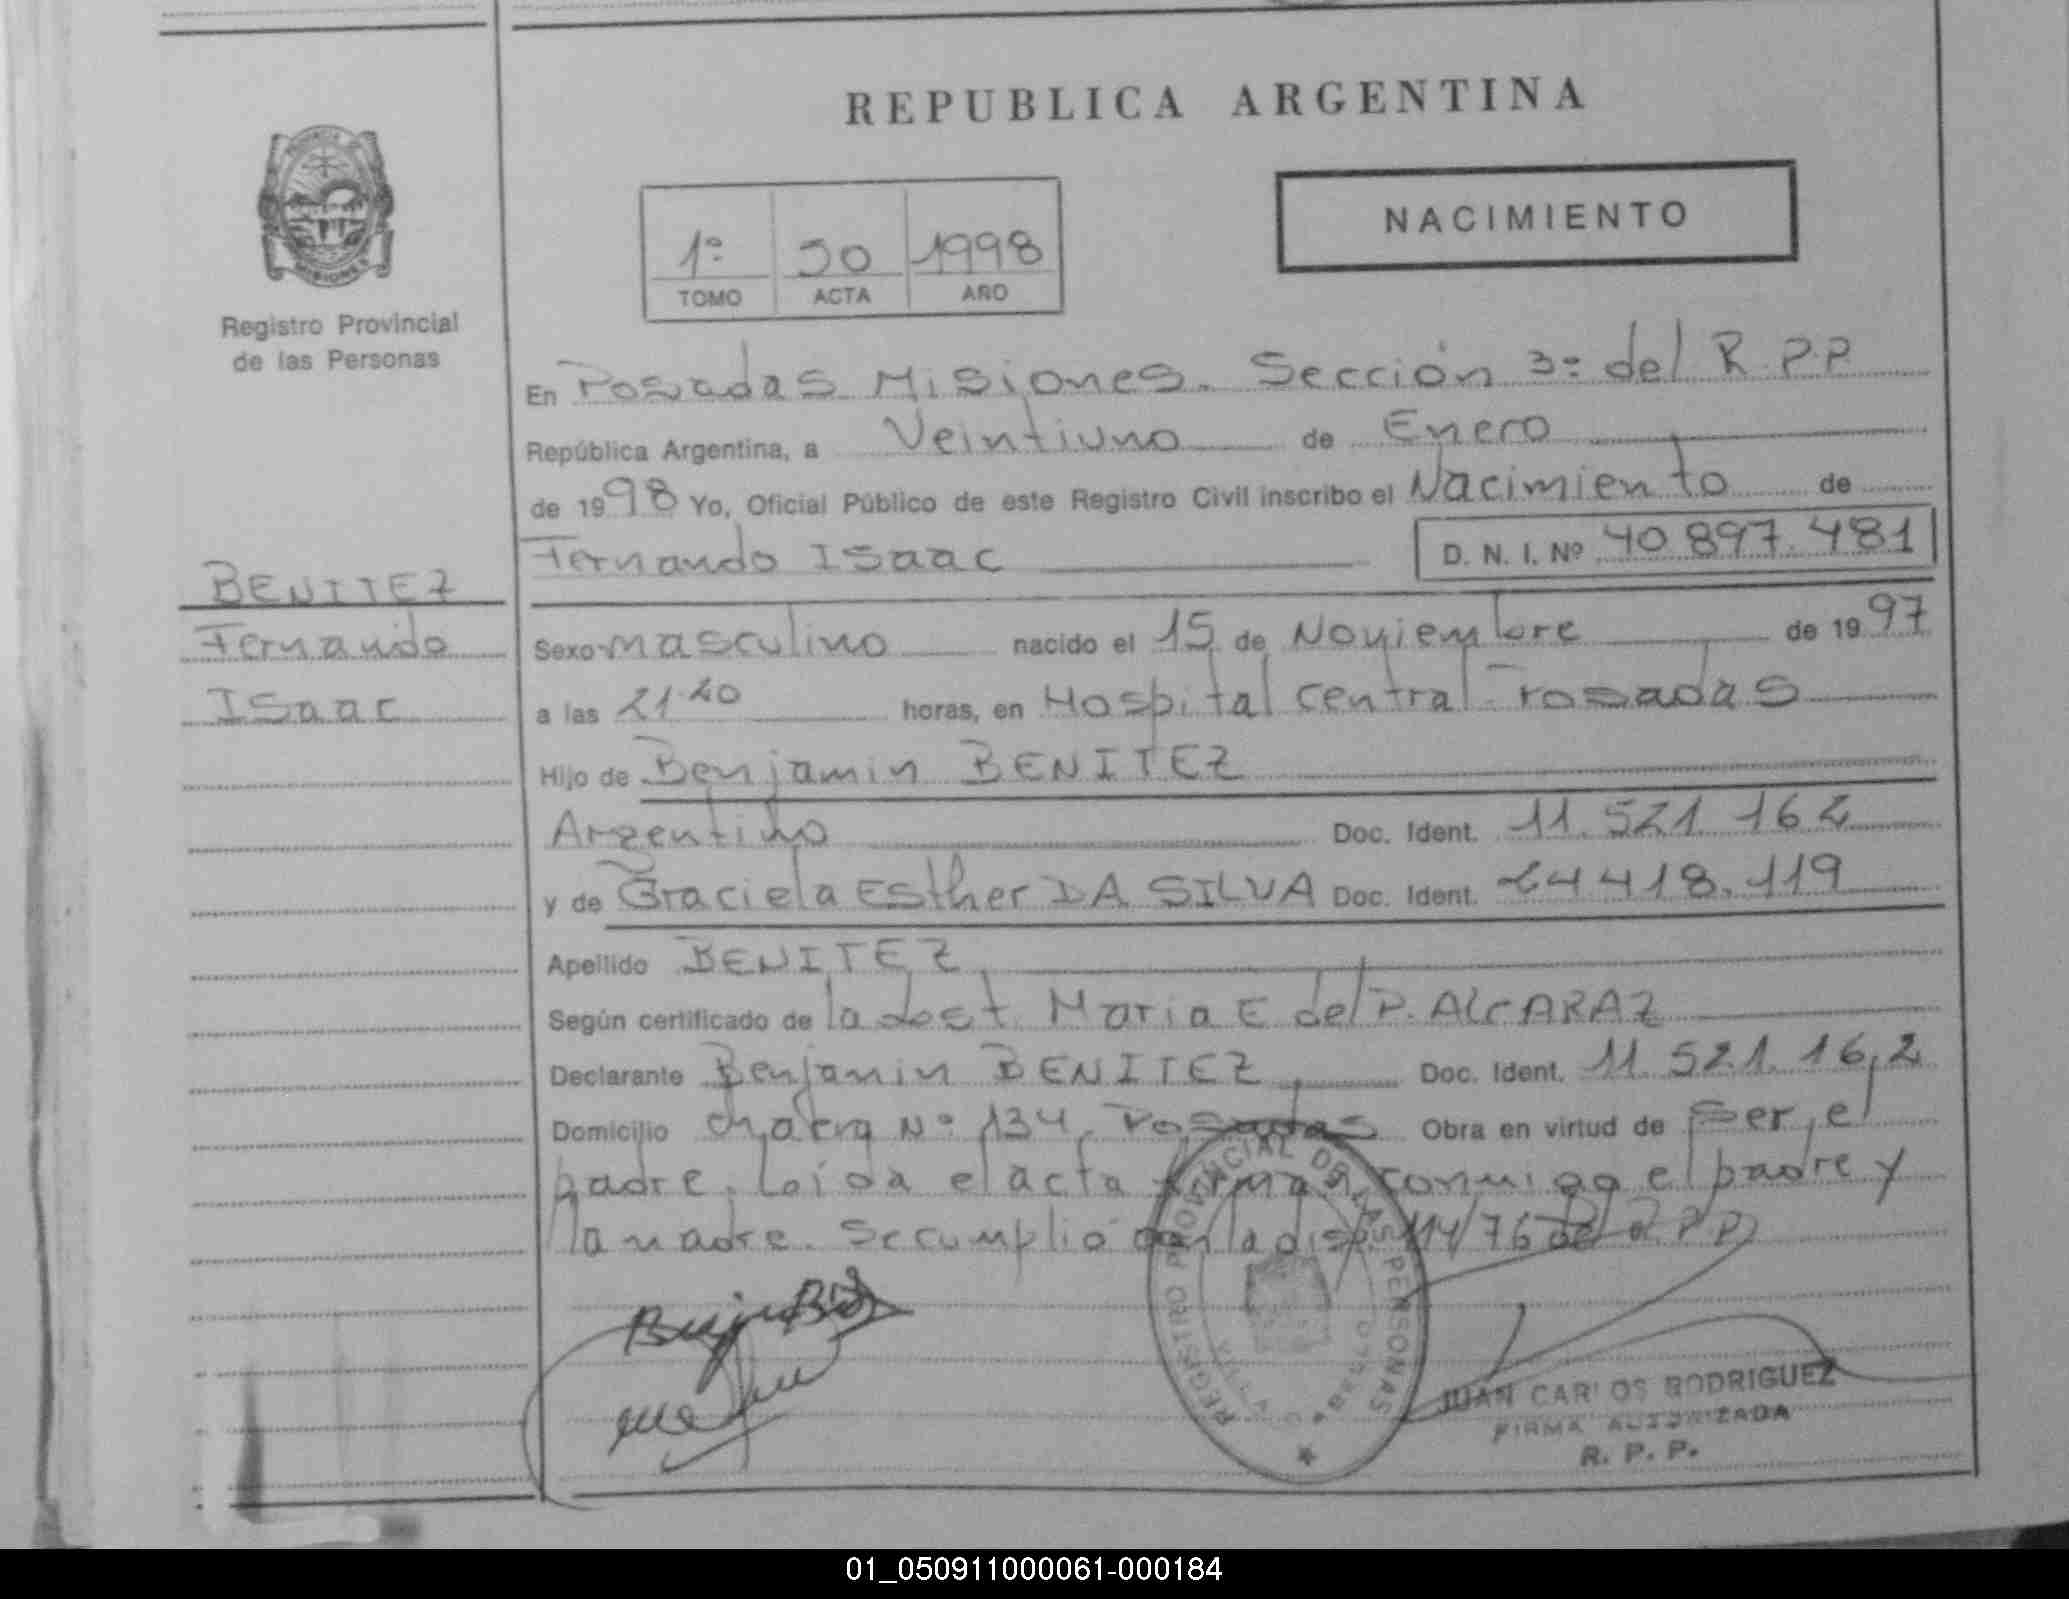 REPUBLICA ARGENTINA
NACIMIENTO
1º 50 1998
TOMO ACTA AÑO
Registro Provincial
de las Personas
En Posadas Misiones. Sección 3º del R.P.P
República Argentina, a Veintiuno de Enero
de 1998 Yo, Oficial Público de este Registro Civil inscribo el Nacimiento de
Fernando Isaac D. N. I. Nº 40.897.481
BENITEZ
Fernando
Isaac
Sexo masculino nacido el 15 de Noviembre de 1997
a las 21.40 horas, en Hospital Central Posadas
Hijo de Benjamin BENITEZ
Argentino Doc. Ident. 11.521.162
y de Graciela Esther DA SILVA Doc. Ident. 24.418.119
Apellido BENITEZ
Según certificado de la Obst. Maria E del P. ALCARAZ
Declarante Benjamin BENITEZ Doc. Ident. 11.521.162
Domicilio chacra Nº 134 Posadas Obra en virtud de ser el
padre. Leída el acta firman conmigo el padre y
la madre. Se cumplió con la disp. 114/76 del R.P.P
REGISTRO PROVINCIAL DE LAS PERSONAS
JUAN CARLOS RODRIGUEZ
FIRMA AUTORIZADA
R. P. P.
01_050911000061-000184